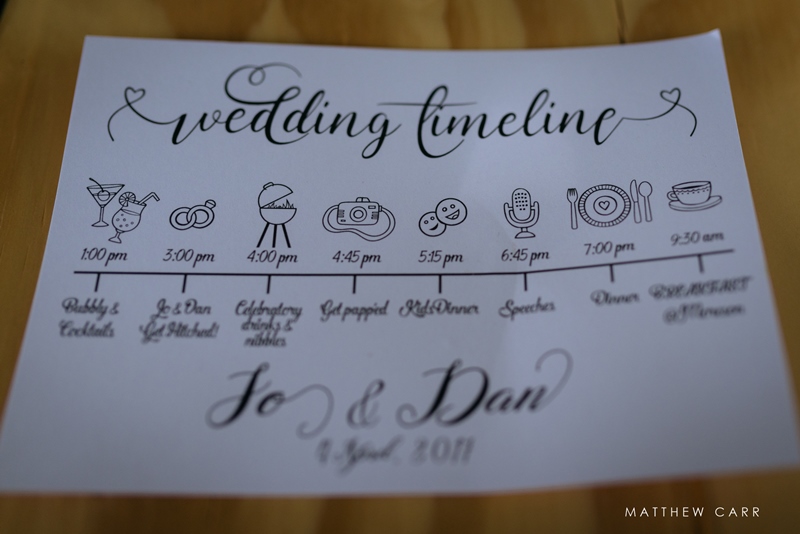 wedding timeline
1:00 pm 3:00 pm 4:00 pm 4:45 pm 5:15 pm 6:45 pm 7:00 pm 9:30 am
Bubbly &
Cocktails
Jo & Dan
Get Hitched!
Celebratory
drinks &
nibbles
Get pappied
Kids Dinner
Speeches
Dinner
BREAKFAST
Jo & Dan
April, 2017
MATTHEW CARR